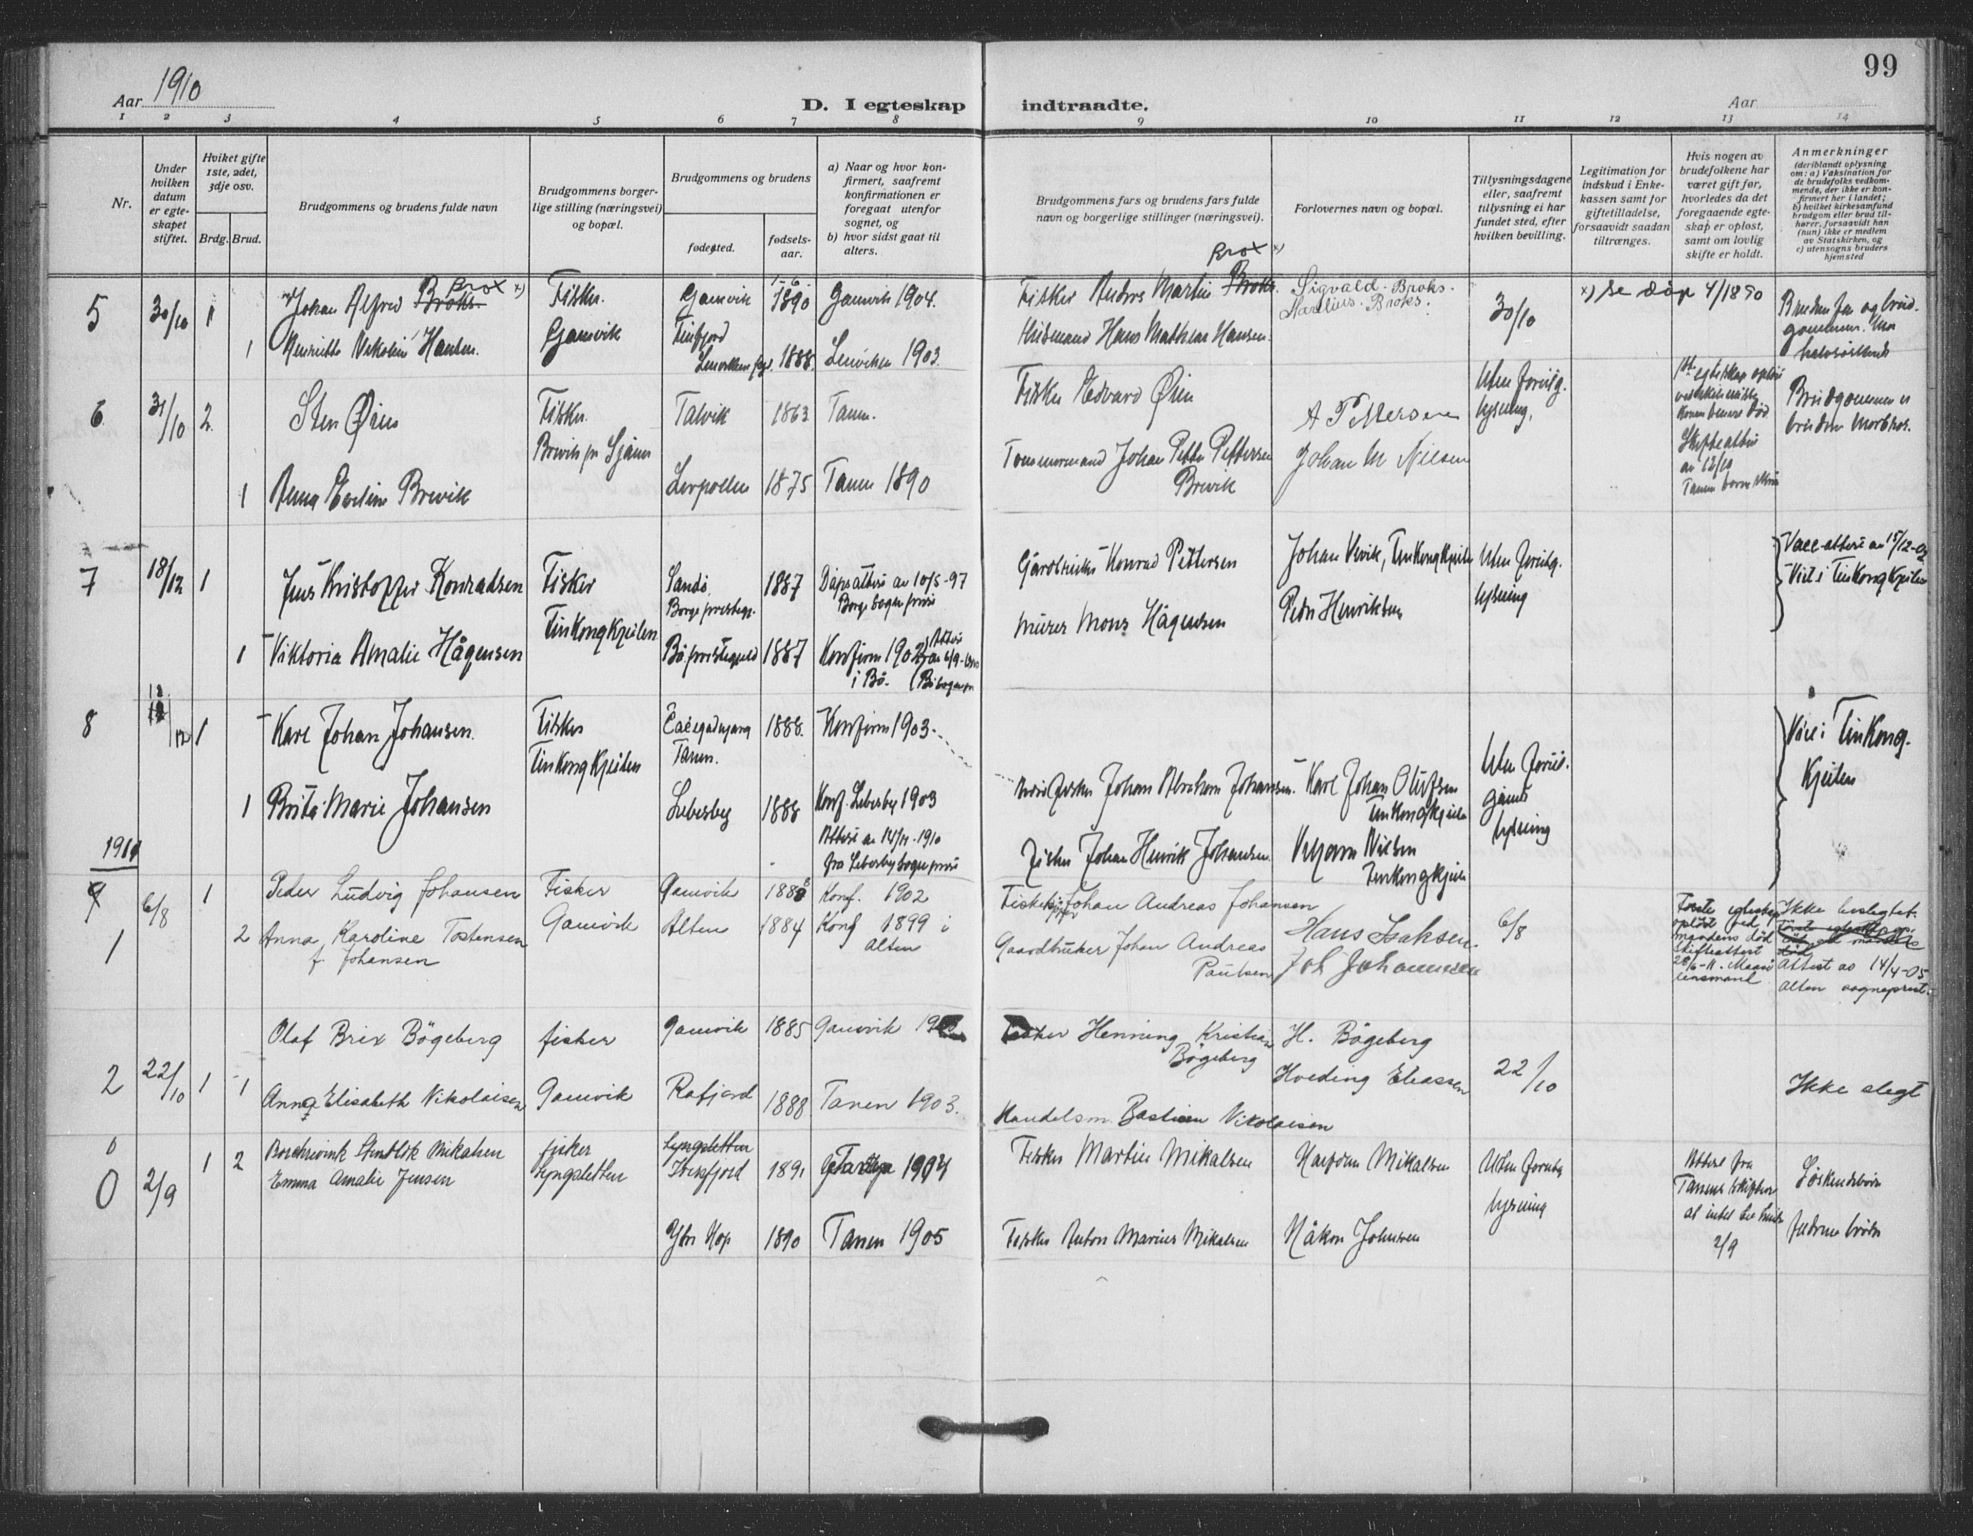 99
Aar 1910
D. I egteskap indtraadte.
Aar
1 2 3 4 5 6 7 8 9 10 11 12 13 14
Nr.
Under hvilken datum er egteskapet stiftet.
Hvilket gifte 1ste, 2det, 3dje osv.
Brdg. Brud.
Brudgommens og brudens fulde navn
Brudgommens borgerlige stilling (næringsvei) og bopæl.
Brudgommens og brudens
fødested.
fødselsaar.
a) Naar og hvor konfirmert, saafremt konfirmationen er foregaat utenfor sognet, og
b) hvor sidst gaat til alters.
Brudgommens fars og brudens fars fulde navn og borgerlige stillinger (næringsvei).
Forlovernes navn og bopæl.
Tillysningsdagene eller, saafremt tillysning ei har fundet sted, efter hvilken bevilling.
Legitimation for indskud i Enkekassen samt for giftetilladelse, forsaavidt saadan tiltrænges.
Hvis nogen av brudefolkene har været gift før, hvorledes da det foregaaende egteskap er opløst, samt om lovlig skifte er holdt.
Anmerkninger
(deriblandt oplysning om: a) Vaksination for de brudefolks vedkommende, der ikke er konfirmert her i landet;
b) hvilket kirkesamfund brudgom eller brud tilhører, forsaavidt han (hun) ikke er medlem av Statskirken, og
c) utensogns bruders hjemsted
5 30/10 1 Johan Alfred Broks Brox x) Fisker Gamvik 1890 Gamvik 1904. Fisker Anders Martin Broks Brox x) Sigvald Broks. 30/10 x) se dåp 4/1890
Marelius Broks.
1 Henritte Nikoline Hansen. Gamvik Finfjord Lenvikens pgd. 1888. Lenviken 1903. Husmand Hans Mathias Hansen.
Brudens far og brudgommens mor halvsøskende
6 31/10 2 Sten Ørin Fisker Talvik 1863 Tanen. Fisker Edvard Ørin A Pettersen Uten forutg. lysning.
Brudgommen er brudens morbror.
1 Anna Eveline Brevik Lerpollen 1875 Tanen 1890 Tømmermand Johan Petter Pettersen Brevik Johan M Nilsen
Skifteattest av 12/10
7 18/12 1 Jens Kristoffer Konradsen Fisker Sandö, Borge prestegj. 1887 Dåpsattest av 10/5-97 Gårdbruker Konrad Pettersen Johan Vevik, Finkongkjeilen Uten forutg. lysning
Vacc.attest av 15/12-02
Viet i Finkongkjeilen
1 Viktoria Amalie Hågensen Finkongkjeilen Bö prestegjeld 1887 Konfirm 1902 i Bö. Murer Mons Hågensen Peder Henriksen
8 12/12 1 Karl Johan Johansen. Fisker Tanen. 1888. Konfirm 1903. fisker Johan Abraham Johansen. Karl Johan Olufsen Finkongkjeilen Uten forutgående lysning
Viet i Finkongkjeilen
1 Brita Marie Johansen Finkongkjeilen Lebesby 1888 Konf. Lebesby 1903
fra Lebesby sogneprest
fisker Johan Henrik Johansen Nielsen Finkongkjeilen
1911
9 1 6/8 1 Peder Ludvig Johansen Fisker Gamvik 1888 Konf. 1902 Fisker Johan Andreas Johansen Hans Isaksen. 6/8
2 Anna Karoline Tostensen f. Johansen Gamvik Alten 1884 Konf 1899 i Alten Gaardbruker Johan Andreas Paulsen Joh Johannesen
Første egteskap opløst ved mandens död skifteattest lensmand
Ikke beslegtet.
Attest av 14/4-05 Alten sogneprest.
2 22/10 1 Olaf Brix Bögeberg fisker Gamvik 1885 Gamvik Fisker Henning Kristian Bögeberg H. Bögeberg 22/10
1 Anna Elisabeth Nikolaisen Gamvik Rafjord 1888 Tanen 1903. Handelsm. Bastian Nikolaisen Hveding Eliassen Ikke slegt
0 2/9 1 2 Mikalsen fisker Lyngsletten 1891 Fisker Martin Mikalsen Mikalsen Uten forutg. lysning
Emma Amalie Jensen Lyngsletten
Attest fra
2/9
Söskendebörn
Hop 1890 Tanen 1905 Fisker Anton Marius Mikalsen Håkon Johnsen